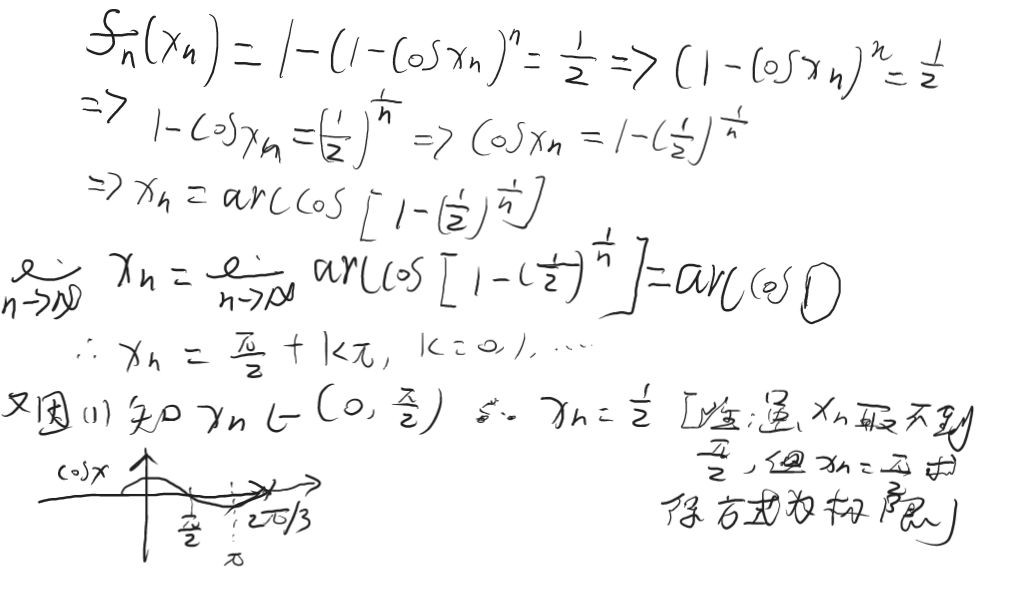 fn(xn) = 1-(1-cosxn)^n = 1/2 => (1-cosxn)^n = 1/2
=> 1-cosxn = (1/2)^(1/n) => cosxn = 1-(1/2)^(1/n)
=> xn = arccos[1-(1/2)^(1/n)]
n→∞ xn = n→∞ arccos[1-(1/2)^(1/n)] = arccos 0
∴ xn = π/2 + kπ, k=0,1,...
又因(1)知 xn ∈ (0, π/2) ∴ xn = 1/2 [注意: xn取不到
π/2, 但xn = π/2
方式为极限]
cosx
π/2
2π/3
π